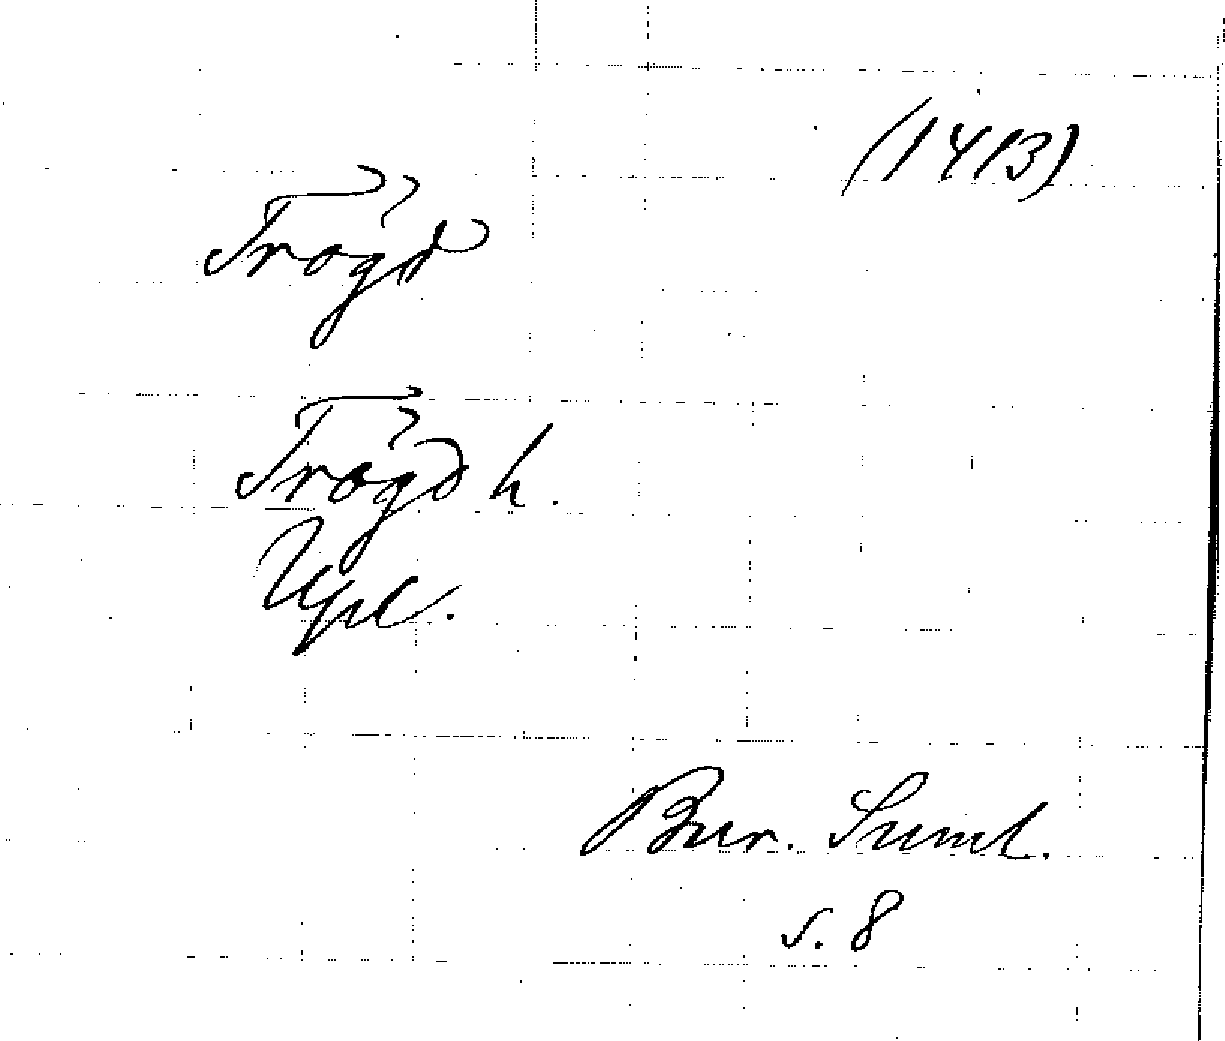 (1413)
Trögd
Trögd h.
Upl.
Bur. Suml.
s. 8